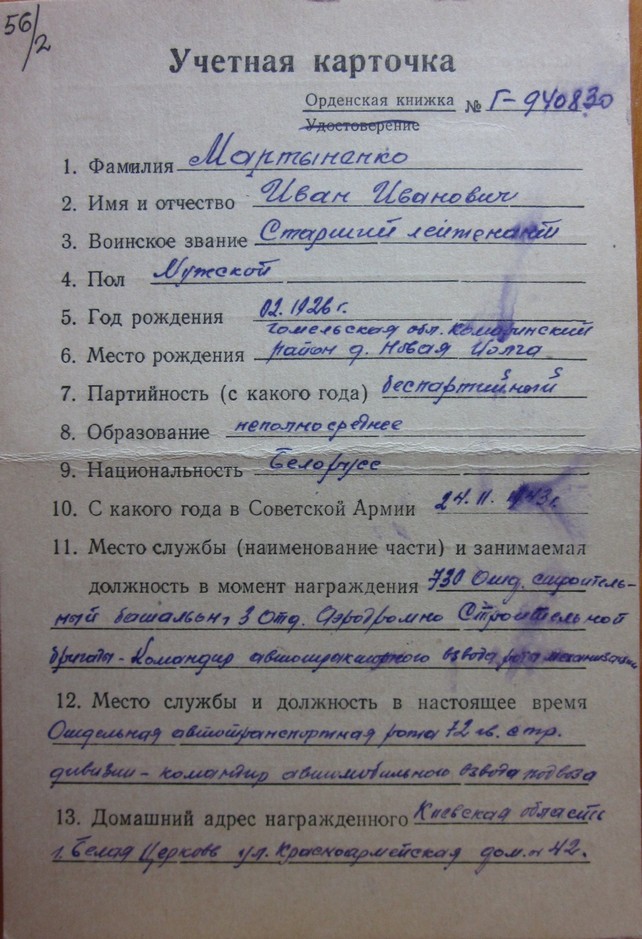 56/2
Учетная карточка
Орденская книжка № Г-940830
Удостоверение
1. Фамилия Мартыненко
2. Имя и отчество Иван Иванович
3. Воинское звание Старший лейтенант
4. Пол Мужской
5. Год рождения 02.1926 г.
Гомельская обл. Комаринский
6. Место рождения район д. Новая Иолча
7. Партийность (с какого года) беспартийный
8. Образование неполно среднее
9. Национальность Белорусс
10. С какого года в Советской Армии 24.11.1943 г.
11. Место службы (наименование части) и занимаемая
должность в момент награждения 730 Отд. строитель-
ный батальон, 3 Отд. Аэродромно Строительной
бригады - Командир автотракторного взвода роты механизации
12. Место службы и должность в настоящее время
Отдельная автотранспортная рота 72 гв. стр.
дивизии - командир автомобильного взвода подвоза
13. Домашний адрес награжденного Киевская область
г. Белая Церковь ул. Красноармейская дом. № 42.